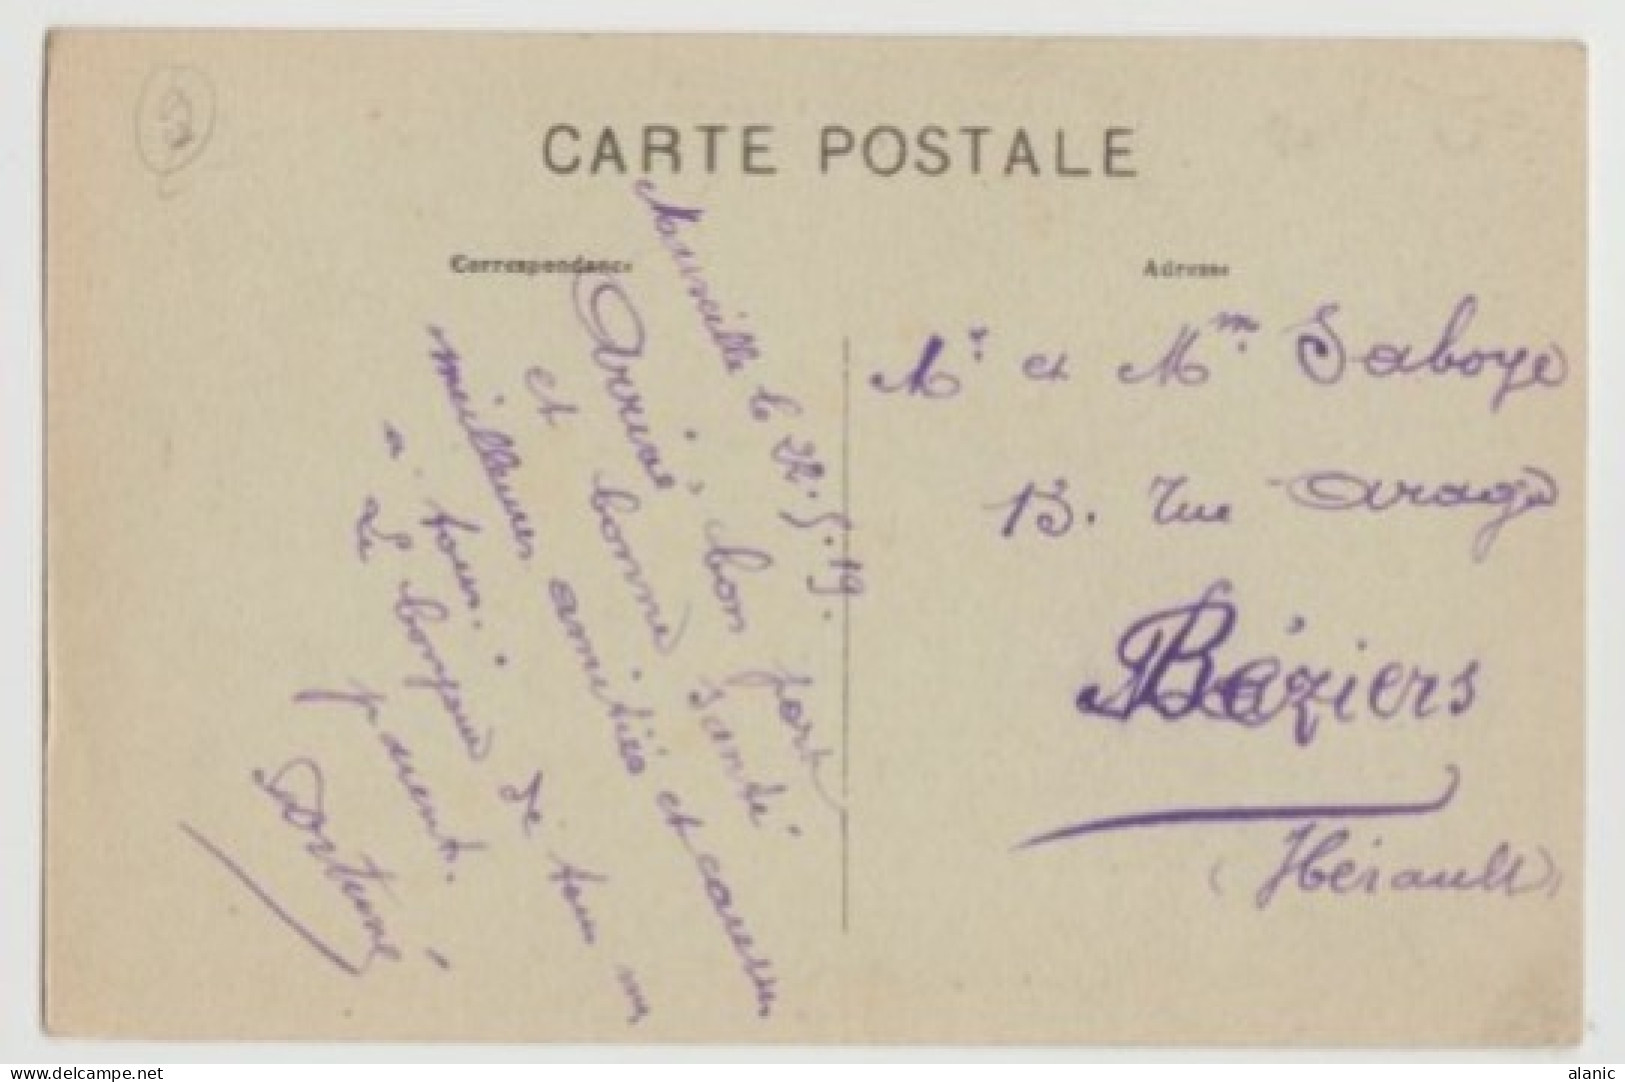 CARTE POSTALE
Correspondance
Marseille le 22.5.19.
Arrivé à bon port
et bonne santé
meilleures amitiés et caresses
à tous.
Le bonjour de tous mes
parents.
Fortuné
Adresse
Mr. et Mm. Saboye
13. rue Arago
Béziers
(Hérault)
www.delcampe.net
alanic